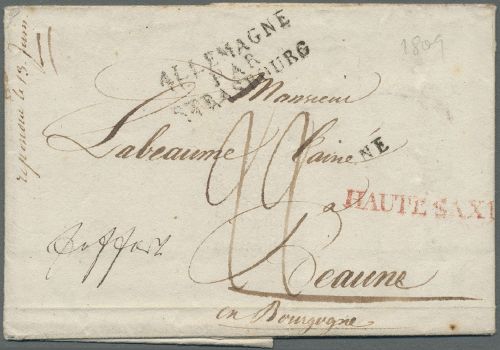 1809
ALLEMAGNE
PAR
STRASBOURG
Monsieur
Labeaume l'ainé
NE
HAUTE SAXE
a
Beaune
en Bourgogne
22
repondue le 13 Juin